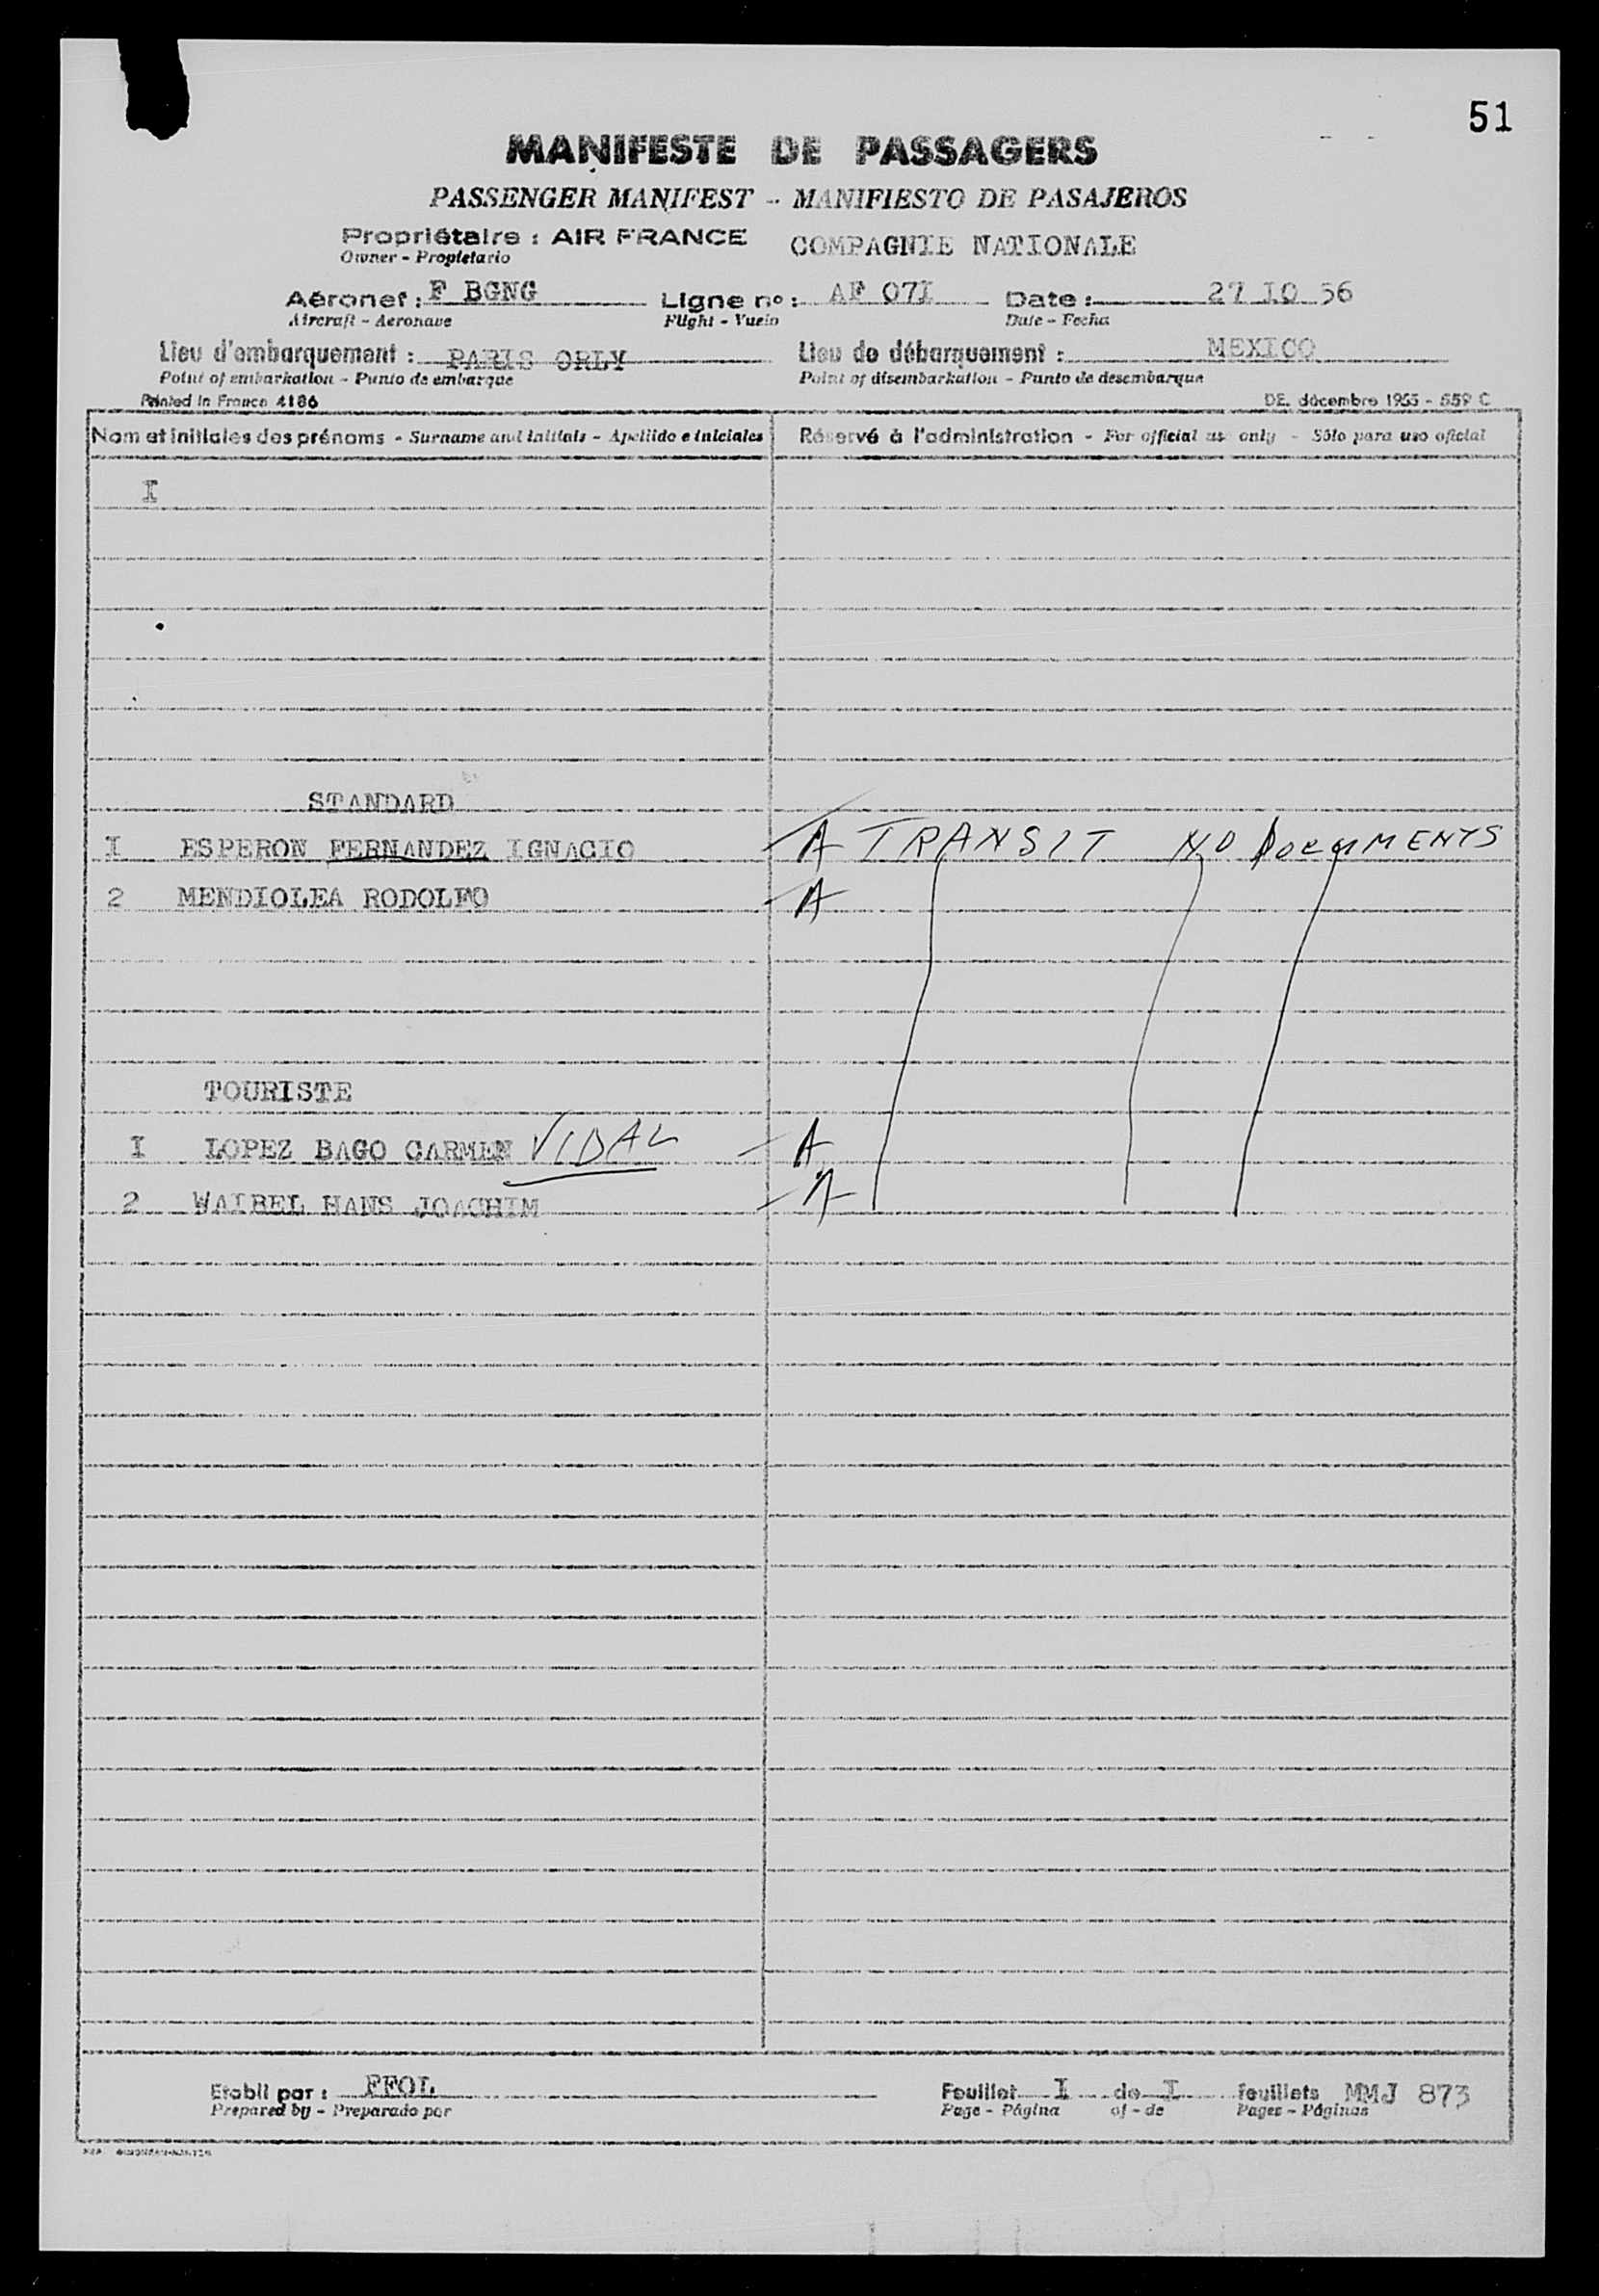 51
MANIFESTE DE PASSAGERS
PASSENGER MANIFEST - MANIFIESTO DE PASAJEROS
Propriétaire : AIR FRANCE COMPAGNIE NATIONALE
Owner - Propietario
Aéronef : F BGNG Ligne no : AF 07I Date : 27 IO 56
Aircraft - Aeronave Flight - Vuelo Date - Fecha
Lieu d'embarquement : PARIS ORLY Lieu de débarquement : MEXICO
Point of embarkation - Punto de embarque Point of disembarkation - Punto de desembarque
Printed in France 4186 DE. décembre 1955 - 559 C
Nom et initiales des prénoms - Surname and initials - Apellido e iniciales Réservé à l'administration - For official use only - Sólo para uso oficial
I
STANDARD
I ESPERON FERNANDEZ IGNACIO A TRANSIT NO DOCUMENTS
2 MENDIOLEA RODOLFO A
TOURISTE
I LOPEZ BAGO CARMEN VIDAL A
2 WAIBEL HANS JOACHIM A
Etabli par : FFOL Feuillet I de I feuillets MMJ 873
Prepared by - Preparado por Page - Página of - de Pages - Páginas